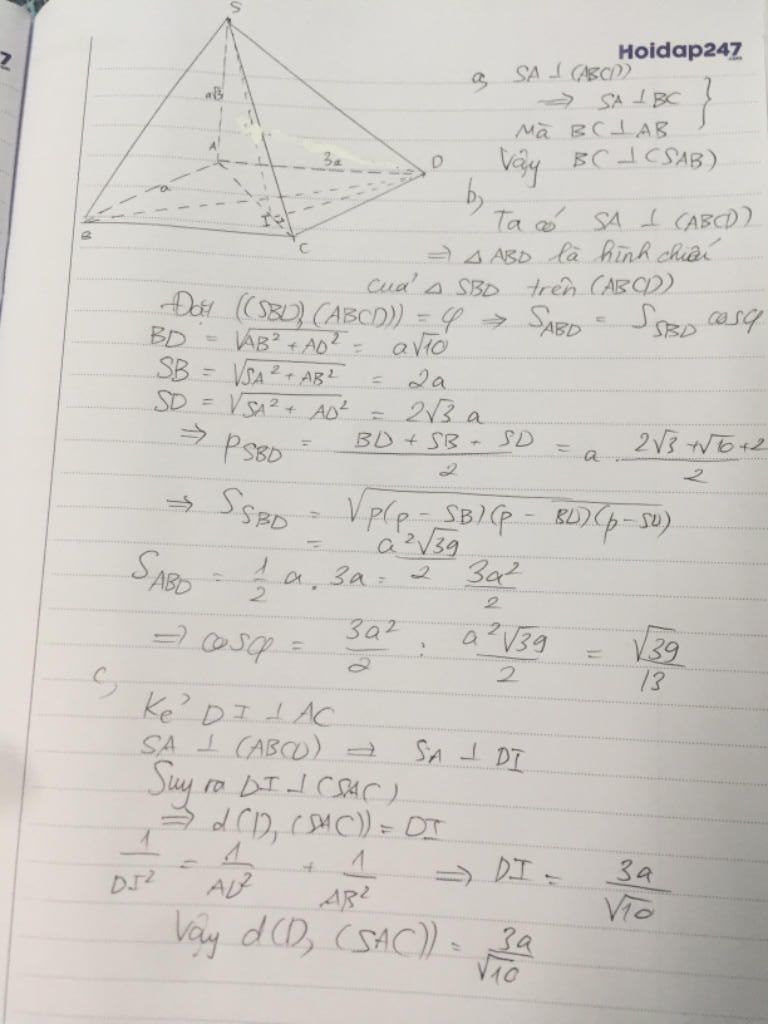 S
Hoidap247
.com
7
a, SA ⊥ (ABCD)
⇒ SA ⊥ BC }
Mà BC ⊥ AB
Vậy BC ⊥ (SAB)
a√3
A
3a
D
a
B
I
C
b,
Ta có SA ⊥ (ABCD)
⇒ △ABD là hình chiếu
của △SBD trên (ABCD)
Đặt ((SBD), (ABCD)) = φ ⇒ S_ABD = S_SBD cosφ
BD = √(AB² + AD²) = a√10
SB = √(SA² + AB²) = 2a
SD = √(SA² + AD²) = 2√3 a
⇒ P_SBD = (BD + SB + SD)/2 = a · (2√3 + √10 + 2)/2
⇒ S_SBD = √(p(p - SB)(p - BD)(p - SD))
= a²√39/2
S_ABD = 1/2 a . 3a = 3a²/2
⇒ cosφ = 3a²/2 : a²√39/2 = √39/13
c,
Kẻ DI ⊥ AC
SA ⊥ (ABCD) ⇒ SA ⊥ DI
Suy ra DI ⊥ (SAC)
⇒ d(D, (SAC)) = DI
1/DI² = 1/AD² + 1/AB² ⇒ DI = 3a/√10
Vậy d(D, (SAC)) = 3a/√10